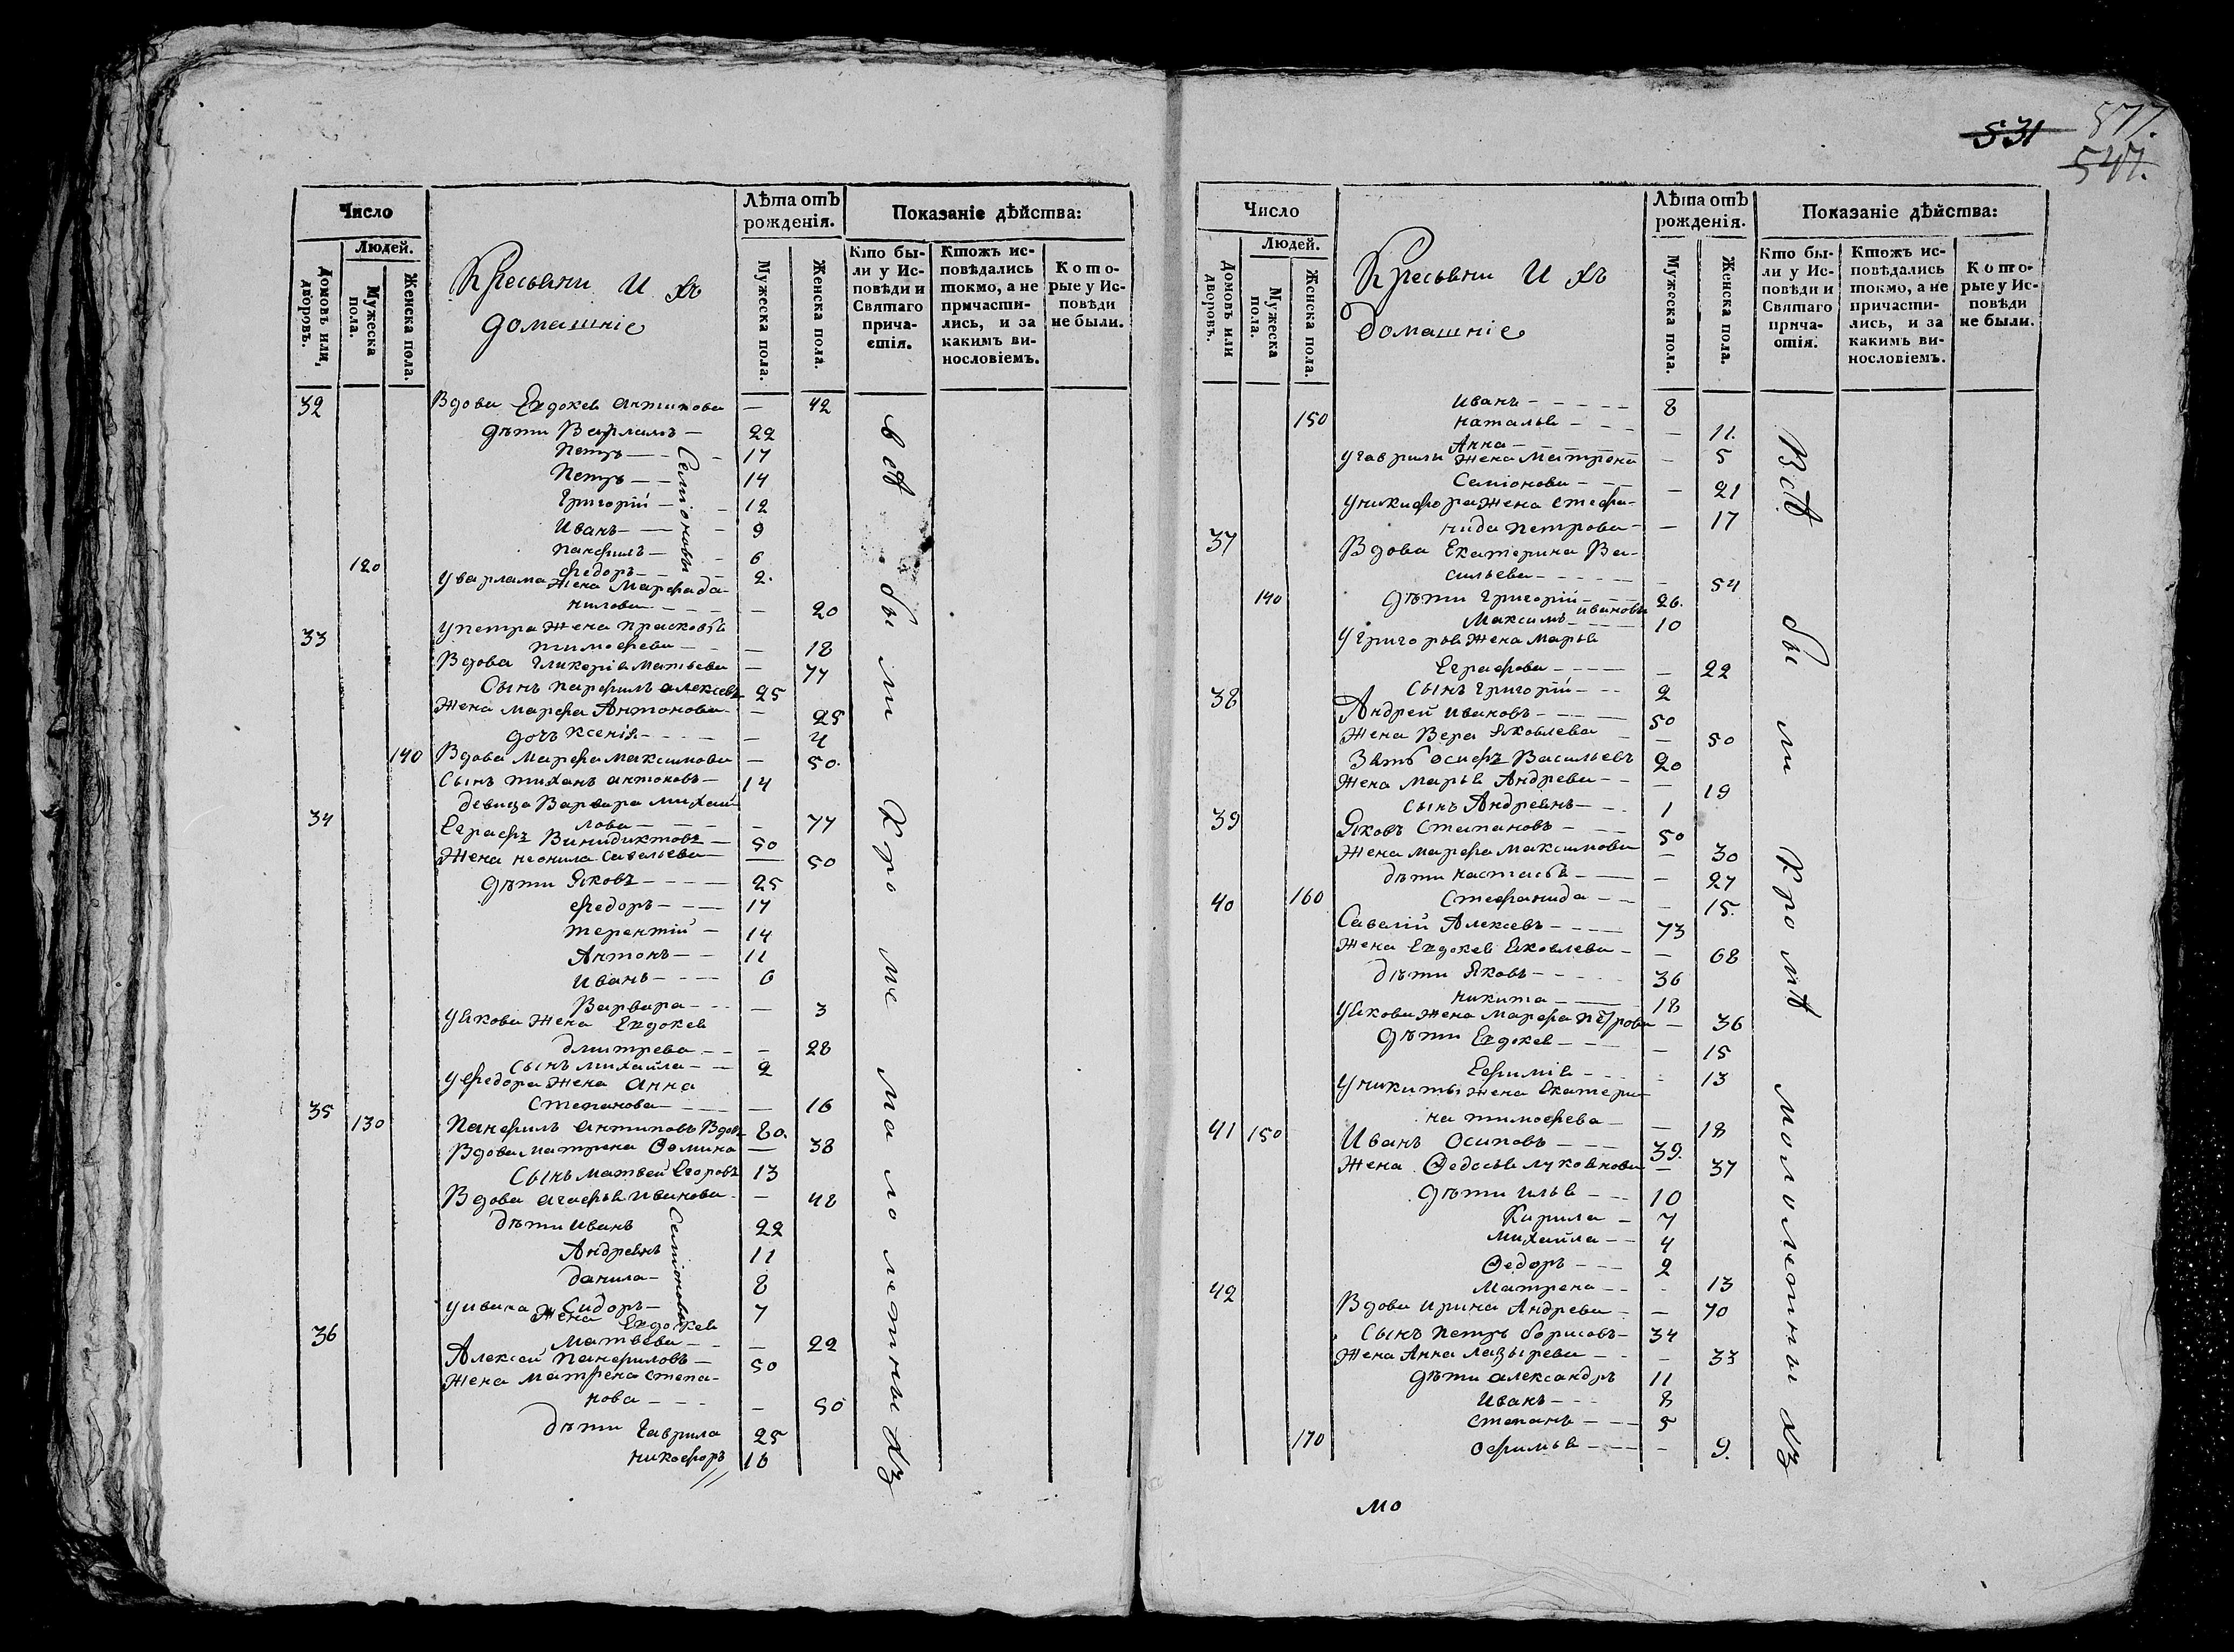 Число
Людей.
Домовъ или, дворовъ.
Мужеска пола.
Женска пола.
Кресьяни И хъ
домашніе
Лѣта отъ рожденія.
Мужеска пола.
Женска пола.
Показаніе дѣйства:
Кто бы-
ли у Ис-
повѣди и
Святаго
прича-
стія.
Ктожъ ис-
повѣдались
токмо, а не
причасти-
лись, и за
какимъ ви-
нословіемъ.
Кото-
рые у Ис-
повѣди
не были.
32 Вдова Евдокея Антипова — 42
дѣти Варламъ — 22
Петръ — 17
Петръ — 14
Григорій — 12
Иванъ — 9
Панфилъ — 6
120 Федоръ — 2.
Семіоновы
У варлама Жена Марфа да-
нилова — 20
33 У петра Жена Прасковѣя
тимофеева — 18
Вдова Гликерія Матвева — 77
Сынъ парфилъ алексевъ 25
Жена Марфа Антонова — 25
дочь Ксенія — 4
140 Вдова Марфа Максимова — 50.
Сынъ тиханъ антоновъ — 14
девица Варвара михай
34 лова — 77
Еграфъ Винидиктовъ — 50
Жена неонила савельева — 50
дѣти Яковъ — 25
федоръ — 17
терентій — 14
Антонъ — 11
Иванъ — 6
Варвара — 3
У Якова Жена Евдокея
дмитрева — 28
сынъ михайла — 2
У федора Жена Анна
Степанова — 16
35 130 Панфилъ антиповъ Вдов 80.
Вдова матрена Фомина — 38
Сынъ матвей Егоровъ 13
Вдова агафья иванова — 48
дѣти иванъ 22
Андреянъ 11
данила — 8
Сидоръ — 7
Семіоновы
У ивана Жена Евдокея
36 матвева — 22
Алексей панфиловъ — 50
Жена матрена степа-
нова — 50
дѣти Гаврила 25
никофоръ 16
всѣ были Кроме малолетныхъ
531
577.
547.
Число
Людей.
Домовъ или дворовъ.
Мужеска пола.
Женска пола.
Кресьяни И хъ
Домашніе
Лѣта отъ рожденія.
Мужеска пола.
Женска пола.
Показаніе дѣйства:
Кто бы-
ли у Ис-
повѣди и
Святаго
прича-
стія.
Ктожъ ис-
повѣдались
токмо, а не
причасти-
лись, и за
какимъ ви-
нословіемъ.
Кото-
рые у Ис-
повѣди
не были.
иванъ — 8
150 наталья — 11.
Анна — 5
У гаврилы Жена Матрона
Семіонова — 21
У никифора Жена стефа-
нида петрова — 17
37 Вдова Екатерина Ва-
сильева — 54
140 дѣти Григорій — 26.
Максимъ — 10
ивановы
У григорья Жена Марья
Еграфова — 22
Сынъ григорій — 2
38 Андрей ивановъ — 50
Жена Вера Яковлева — 50
Зять осифъ Васильевъ 20
Жена Марья Андрева — 19
сынъ Андреянъ — 1
39 Яковъ Степановъ — 50
Жена марфа максимова — 30
дѣти настасья — 27
160 Стефанида — 15.
40 Савелій Алексевъ — 73
Жена Евдокея Яковлева — 68
дѣти Яковъ — 36
никита — 18
У Якова Жена Марфа петрова — 36
дѣти Евдокея — 15
Ефимія — 13
У никиты Жена Екатери
на тимофева — 18
41 150 Иванъ Осиповъ — 39.
Жена Федосья лукоянова — 37
дѣти илья — 10
Кирила — 7
михайла — 4
Федоръ — 2
Матрена — 13
42 Вдова ирина Андрева — 70
Сынъ петръ борисовъ — 34
Жена Анна лазырева — 33
дѣти александръ 11
иванъ — 8
степанъ — 5
170 офимья — 9.
Всѣ были Кромѣ малолетныхъ
мо